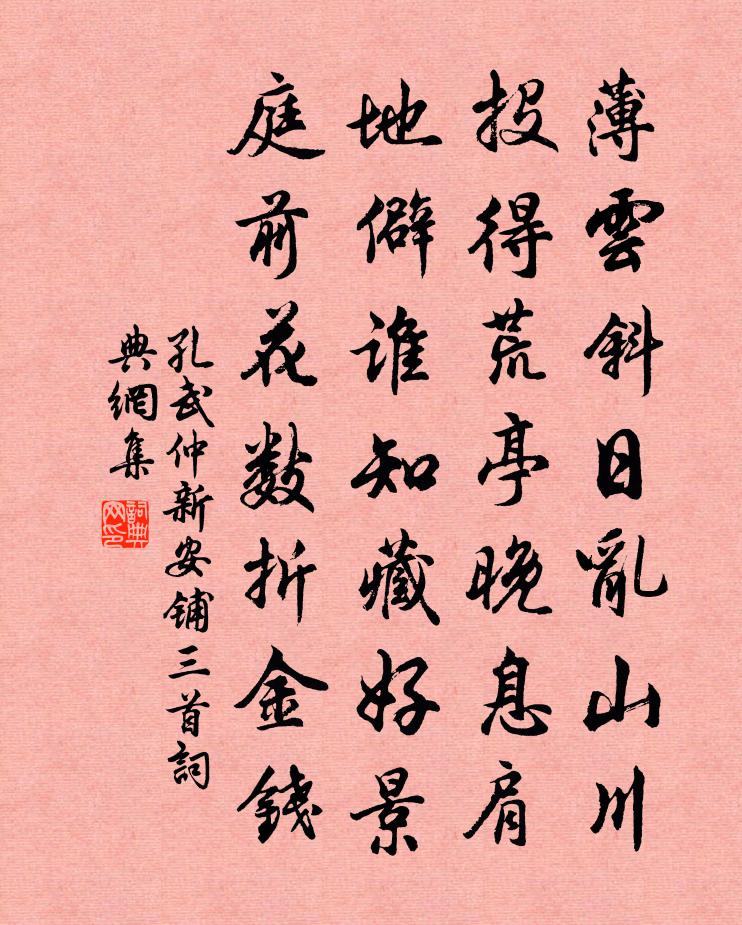 薄雲斜日亂山川
投得荒亭晚息肩
地僻誰知藏好景
庭前花數折金錢
孔武仲新安鋪三首詞
典網集
詞典網印